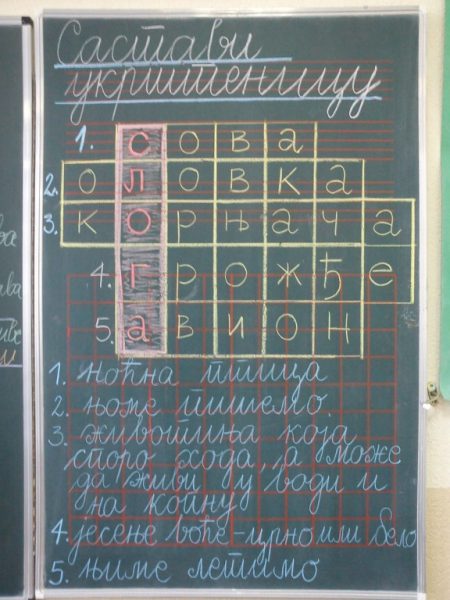 Састави
укрштеницу
1. сова
2. оловка
3. корњача
4. грожђе
5. авион
1. ноћна птица
2. њоме пишемо.
3. животиња која
споро хода, а може
да живи у води и
на копну
4. јесење воће - црно или бело
5. њиме летимо